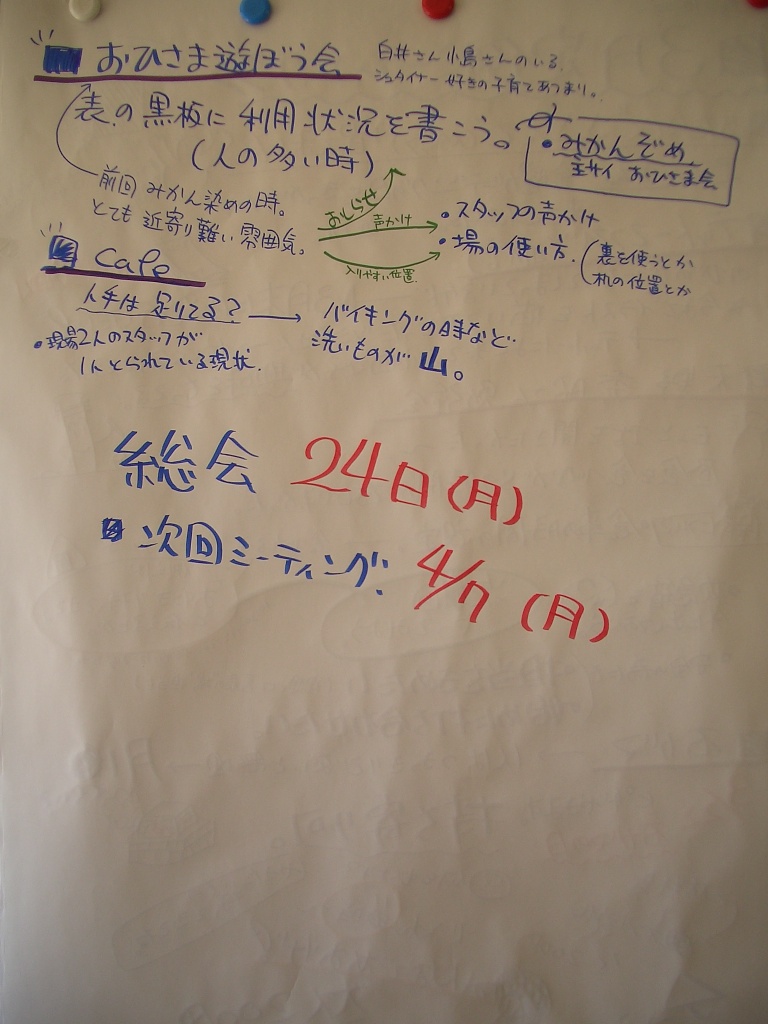 おひさま遊ぼう会
白井さん小島さんのいる
シュタイナー好きの子育てあつまり。
表の黒板に利用状況を書こう。
(人の多い時)
・みかんぞめ
主サイ おひさま会
前回 みかん染めの時。
とても近寄り難い雰囲気。
おしらせ
声かけ
入りやすい位置
・スタッフの声かけ
・場の使い方.
(裏を使うとか
机の位置とか
Cafe
人手は足りてる?
→ バイキングの時など
洗いものが山。
・現場2人のスタッフが
1人とられている現状.
総会 24日(月)
次回ミーティング. 4/7(月)